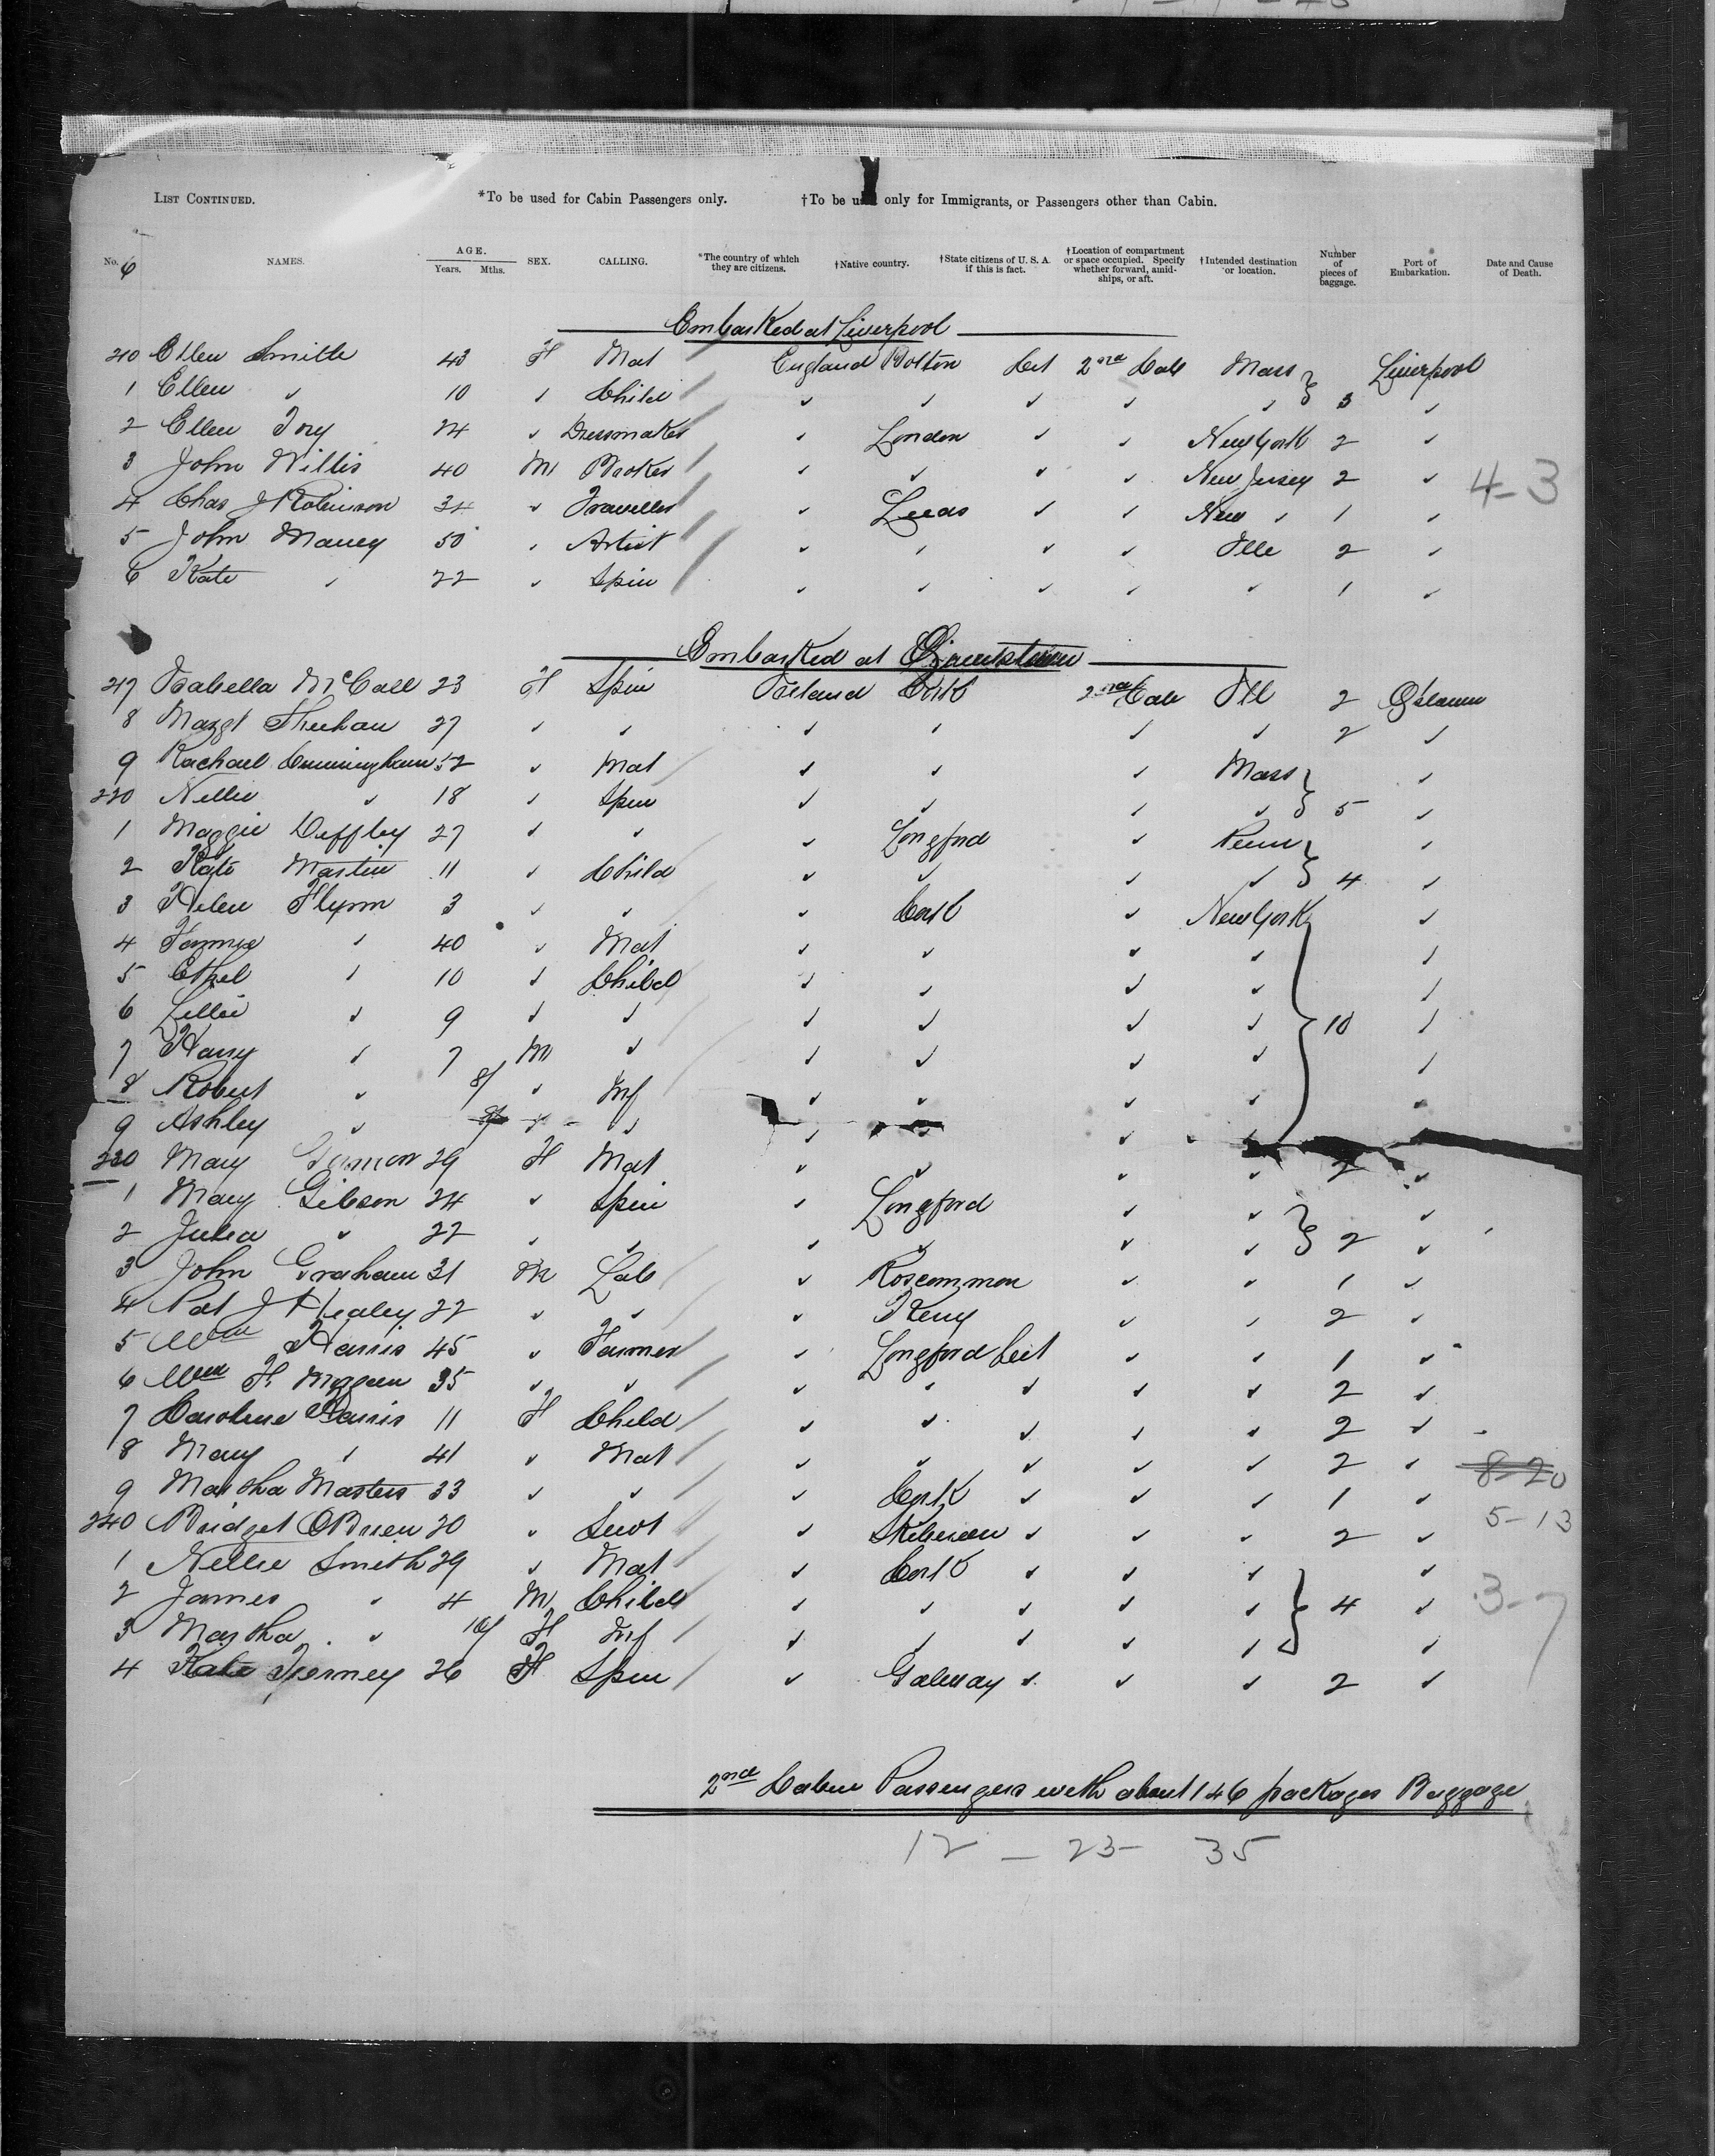 LIST CONTINUED. *To be used for Cabin Passengers only. †To be only for Immigrants, or Passengers other than Cabin.
No. 6 NAMES. AGE. Years. Mths. SEX. CALLING. *The country of which they are citizens. †Native country. †State citizens of U. S. A. if this is fact. †Location of compartment or space occupied. Specify whether forward, amidships, or aft. †Intended destination or location. Number of pieces of baggage. Port of Embarkation. Date and Cause of Death.
Embarked at Liverpool
210 Ellen Smith 43 F Mat England Bolton Cit 2nd Cab Mass Liverpool
1 Ellen " 10 " Child " " " " " } 3 "
2 Ellen 24 " Dressmaker " London " " New York 2 "
3 John Willis 40 M Broker " " " " New Jersey 2 "
4 Chas J Robinson 34 " Traveller " Leeds " " New " 1 "
4-3
5 John Maney 50 " Artist " " " " Ills 2 "
6 Kate " 22 " Spin " " " " " 1 "
Embarked at Queenstown
217 Isabella McCall 23 F Spin Ireland Cork 2nd Cab Ill 2 Q'stown
8 Margt Sheehan 27 " " " " " " 2 "
9 Rachael Cunningham 52 " Mat " " " Mass "
220 Nellie " 18 " Spin " " " " } 5 "
1 Maggie Deffley 27 " " " Longford " Penn "
2 Kate Martin 11 " Child " " " " } 4 "
3 Helen Flynn 3 " " " Cork " New York "
4 Fannie " 40 " Mat " " " " "
5 Ethel " 10 " Child " " " " "
6 Lillie " 9 " " " " " " } 10 "
7 Harry " 7 M " " " " " "
8 Robert " 8/ " Inf " " " " "
9 Ashley " 8/ " " " " " "
230 Mary 29 F Mat " " " " 2 "
1 Mary Gibson 24 " Spin " Longford " " "
2 Julia " 22 " " " " " " } 2 "
3 John Graham 31 M Lab " Roscommon " " 1 "
4 Pat J Healey 22 " " " Kerry " " 2 "
5 Wm Harris 45 " Farmer " Longford Cit " " 1 "
6 Wm H 35 " " " " " " " 2 "
7 Caroline Harris 11 F Child " " " " " 2 "
8 Mary " 41 " Mat " " " " " 2 " 8-20
9 Martha Masters 33 " " " Cork " " " 1 "
240 Bridget OBrien 20 " Servt " Skibereen " " " 2 " 5-13
1 Nellie Smith 29 " Mat " Cork " " " "
2 James " 4 M Child " " " " " } 4 " 3-7
3 Martha " 10/ F Inf " " " " " "
4 Kate Tierney 26 F Spin " Galway " " " 2 "
2nd Cabin Passengers with about 146 packages Baggage
12 - 23 - 35